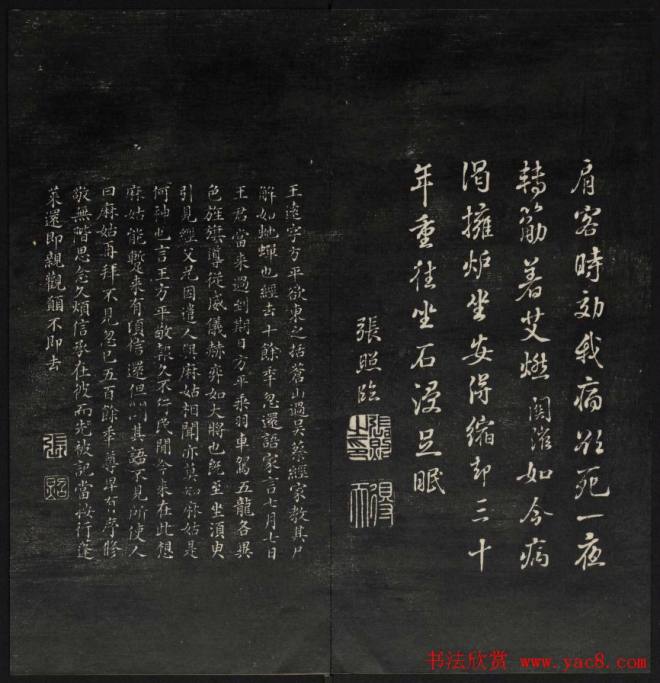 肩客時効我病欲死一夜
轉筋着艾燃関滋如今病
渴擁炉坐安得縮却三十
年重往坐石浸足眠
張照臨
張照之印
得天
王遠字方平欲東之括蒼山過吳蔡經家教其尸
解如蛇蟬也經去十餘年忽還語家言七月七日
王君當来過到期日方平乘羽車駕五龍各異
色旌旗導從威儀赫弈如大將也既至坐須臾
引見經父兄因遣人與麻姑相聞亦莫知麻姑是
何神也言王方平敬報久不行民間今来在此想
麻姑能蹔来有頃信還但聞其語不見所使人
曰麻姑再拜不見忽已五百餘年尊卑有序修
敬無階思念久煩信承在彼而先被記當按行蓬
萊還即親觀願不即去
張
照
书法欣赏 www.yac8.com